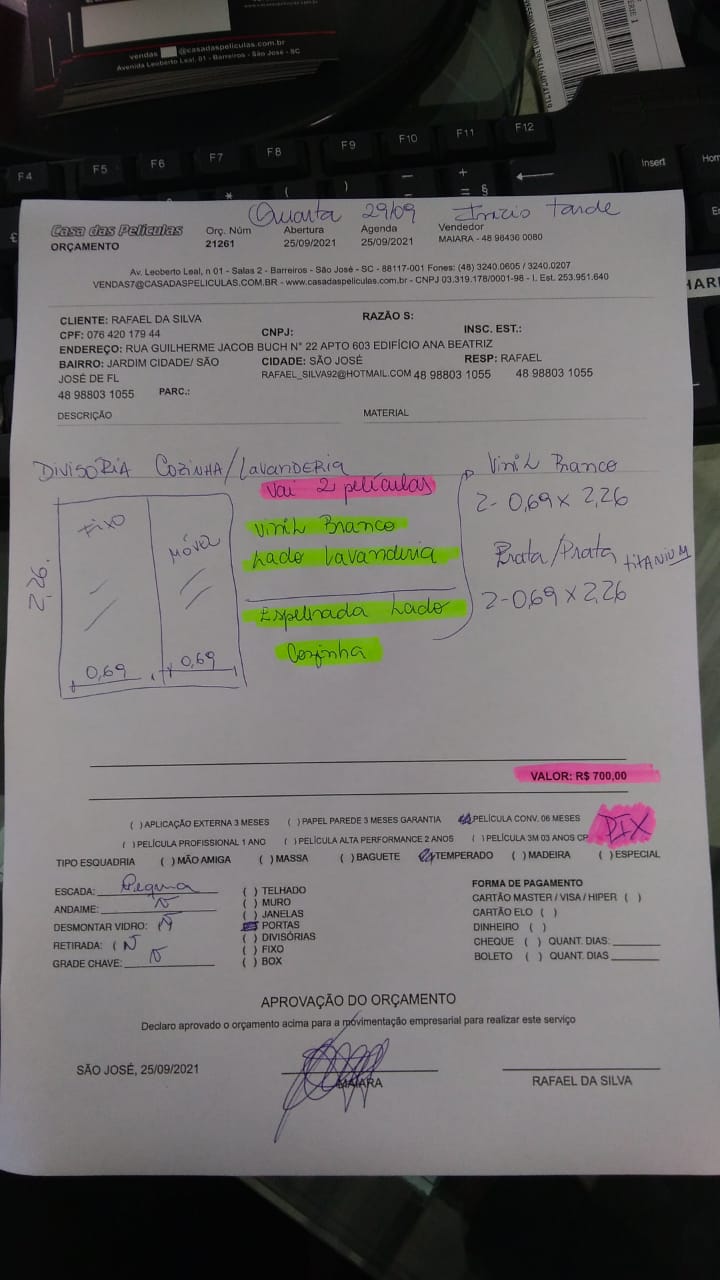 vendas @casadaspeliculas.com.br
Avenida Leoberto Leal, 01 - Barreiros - São José - SC
F4 F5 F6 F7 F8 F9 F10 F11 F12
Insert
Quarta 29/09 Início tarde
Casa das Películas
ORÇAMENTO
Orç. Núm
21261
Abertura
25/09/2021
Agenda
25/09/2021
Vendedor
MAIARA - 48 98436 0080
Av. Leoberto Leal, n 01 - Salas 2 - Barreiros - São José - SC - 88117-001 Fones: (48) 3240.0605 / 3240.0207
VENDAS7@CASADASPELICULAS.COM.BR - www.casadaspeliculas.com.br - CNPJ 03.319.178/0001-98 - I. Est. 253.951.640
CLIENTE: RAFAEL DA SILVA RAZÃO S:
CPF: 076 420 179 44 CNPJ: INSC. EST.:
ENDEREÇO: RUA GUILHERME JACOB BUCH N° 22 APTO 603 EDIFÍCIO ANA BEATRIZ
BAIRRO: JARDIM CIDADE/ SÃO JOSÉ DE FL CIDADE: SÃO JOSÉ RESP: RAFAEL
RAFAEL_SILVA92@HOTMAIL.COM 48 98803 1055 48 98803 1055
48 98803 1055 PARC.:
DESCRIÇÃO MATERIAL
DIVISORIA COZINHA/LAVANDERIA
Vai 2 películas
Vinil Branco
Lado Lavanderia
Espelhada Lado
Cozinha
Fixo
Móvel
2,26
0,69 0,69
Vinil Branco
2- 0,69 x 2,26
Prata/Prata TITANIUM
2-0,69 x 2,26
VALOR: R$ 700,00
( ) APLICAÇÃO EXTERNA 3 MESES ( ) PAPEL PAREDE 3 MESES GARANTIA PELÍCULA CONV. 06 MESES
PIX
( ) PELÍCULA PROFISSIONAL 1 ANO ( ) PELÍCULA ALTA PERFORMANCE 2 ANOS ( ) PELÍCULA 3M 03 ANOS CP
TIPO ESQUADRIA ( ) MÃO AMIGA ( ) MASSA ( ) BAGUETE TEMPERADO ( ) MADEIRA ( ) ESPECIAL
ESCADA: Pequna
ANDAIME: N
DESMONTAR VIDRO: N
RETIRADA: ( N
GRADE CHAVE: N
( ) TELHADO
( ) MURO
( ) JANELAS
PORTAS
( ) DIVISÓRIAS
( ) FIXO
( ) BOX
FORMA DE PAGAMENTO
CARTÃO MASTER / VISA / HIPER ( )
CARTÃO ELO ( )
DINHEIRO ( )
CHEQUE ( ) QUANT. DIAS:
BOLETO ( ) QUANT. DIAS
APROVAÇÃO DO ORÇAMENTO
Declaro aprovado o orçamento acima para a movimentação empresarial para realizar este serviço
SÃO JOSÉ, 25/09/2021
MAIARA
RAFAEL DA SILVA